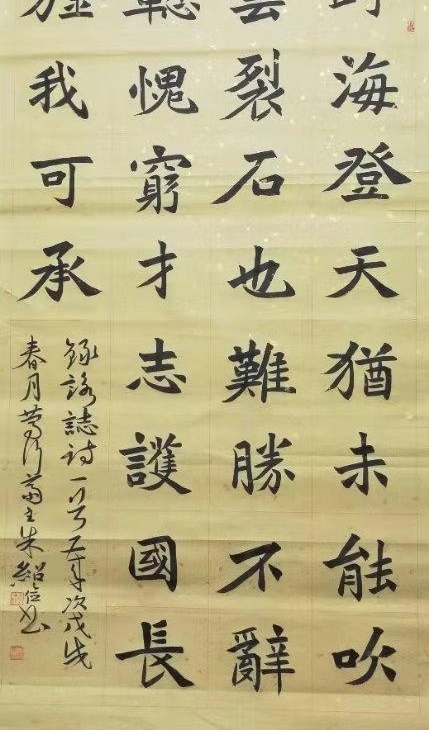 海登天猶未能吹
裂石也難勝不辭
愧窮才志護國長
我可承
錄詠誌詩一首 年次戊戌
春月 齋主朱紹位書